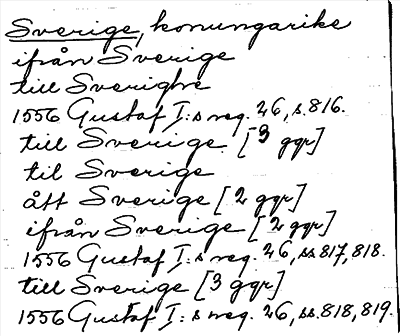 Sverige, konungarike
ifrån Sverige
till Sverighe
1556 Gustaf I:s reg. 26, s. 816.
till Sverige [3 ggr]
til Sverige
ått Sverige [2 ggr]
ifrån Sverige [2 ggr]
1556 Gustaf I:s reg. 26, ss. 817, 818.
till Sverige [3 ggr]
1556 Gustaf I:s reg. 26, ss. 818, 819.